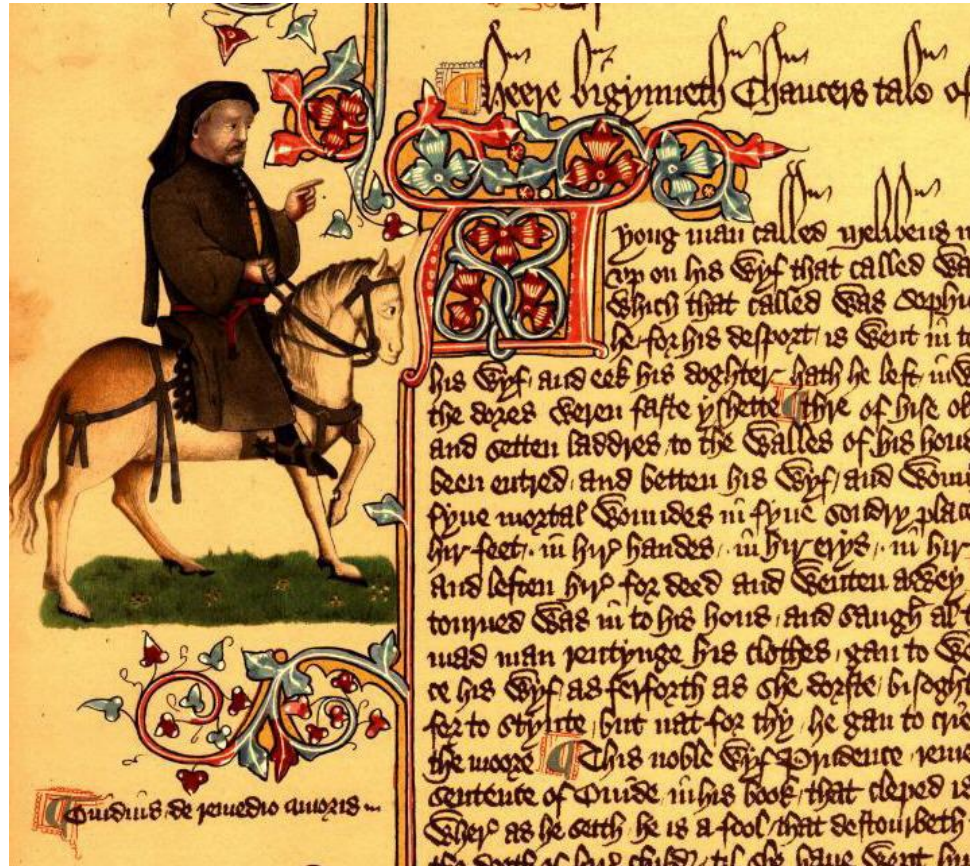 Heere bigynneth Chaucers tale of
yong man called Melibeus
vp on his wyf that called
which that called was
he for his desport is went in to
his wyf and eek his doghter hath he left
the dores weren faste yshette thre of hise
and setten laddres to the walles of his hous
been entred and betten his wyf and
fyue mortal woundes in fyue sondry
hir feet in hir handes in hir erys in hir
and leften hir for deed and wenten awey
tourned was in to his hous and saugh al
mad man rentynge his clothes gan to
ce his wyf as ferforth as she dorste bisoghte
for to stynte but nat for thy he gan to crie
the moore This noble wyf Prudence
sentence of Ouide in his book that cleped is
wher as he seith he is a fool that destourbeth
the deeth of hir child til she haue wept
Ouidius de remedio amoris